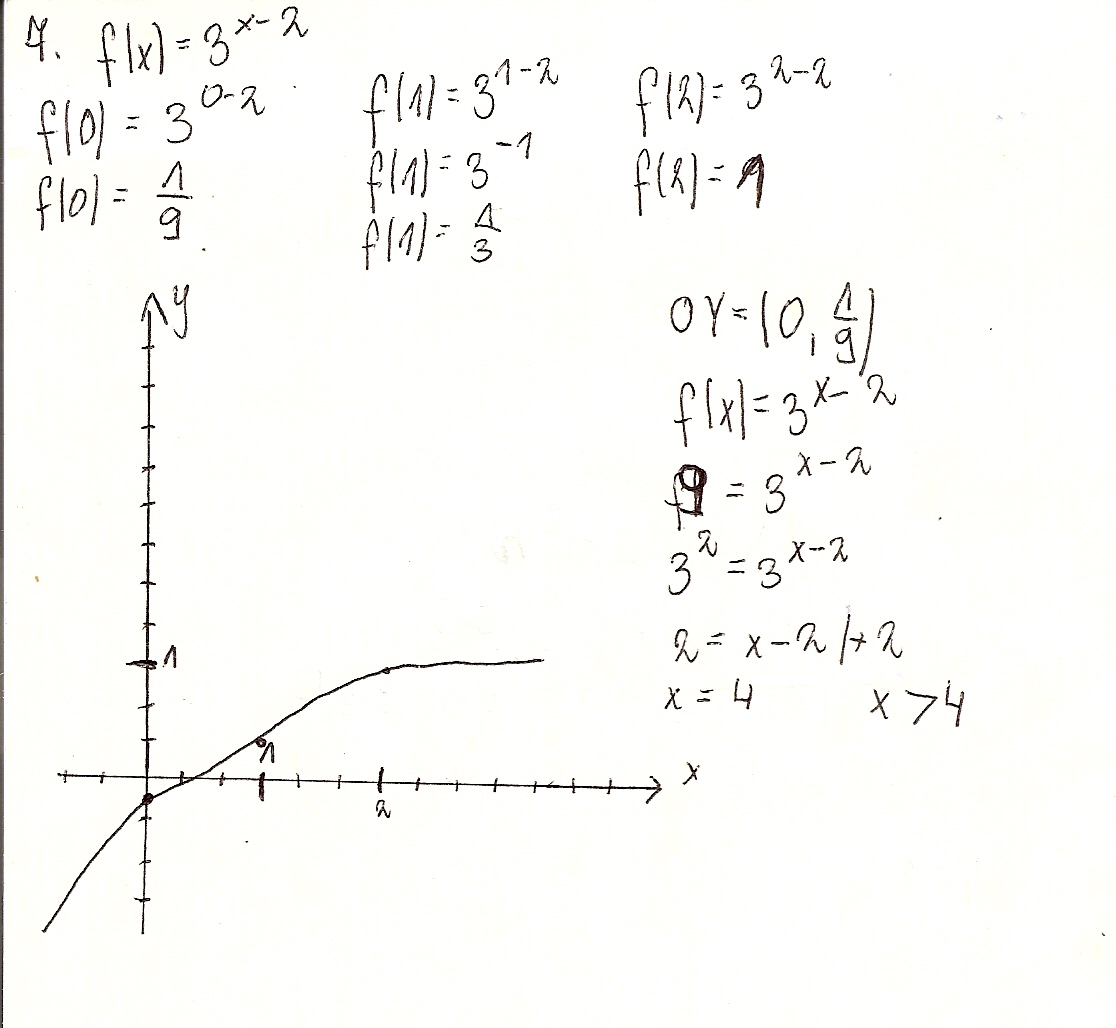 7. f(x) = 3^{x-2}
f(0) = 3^{0-2}
f(0) = 1/9
f(1) = 3^{1-2}
f(1) = 3^{-1}
f(1) = 1/3
f(2) = 3^{2-2}
f(2) = 1
y
1
1
2
x
OY = (0, 1/9)
f(x) = 3^{x-2}
9 = 3^{x-2}
3^2 = 3^{x-2}
2 = x-2 /+2
x = 4 x > 4